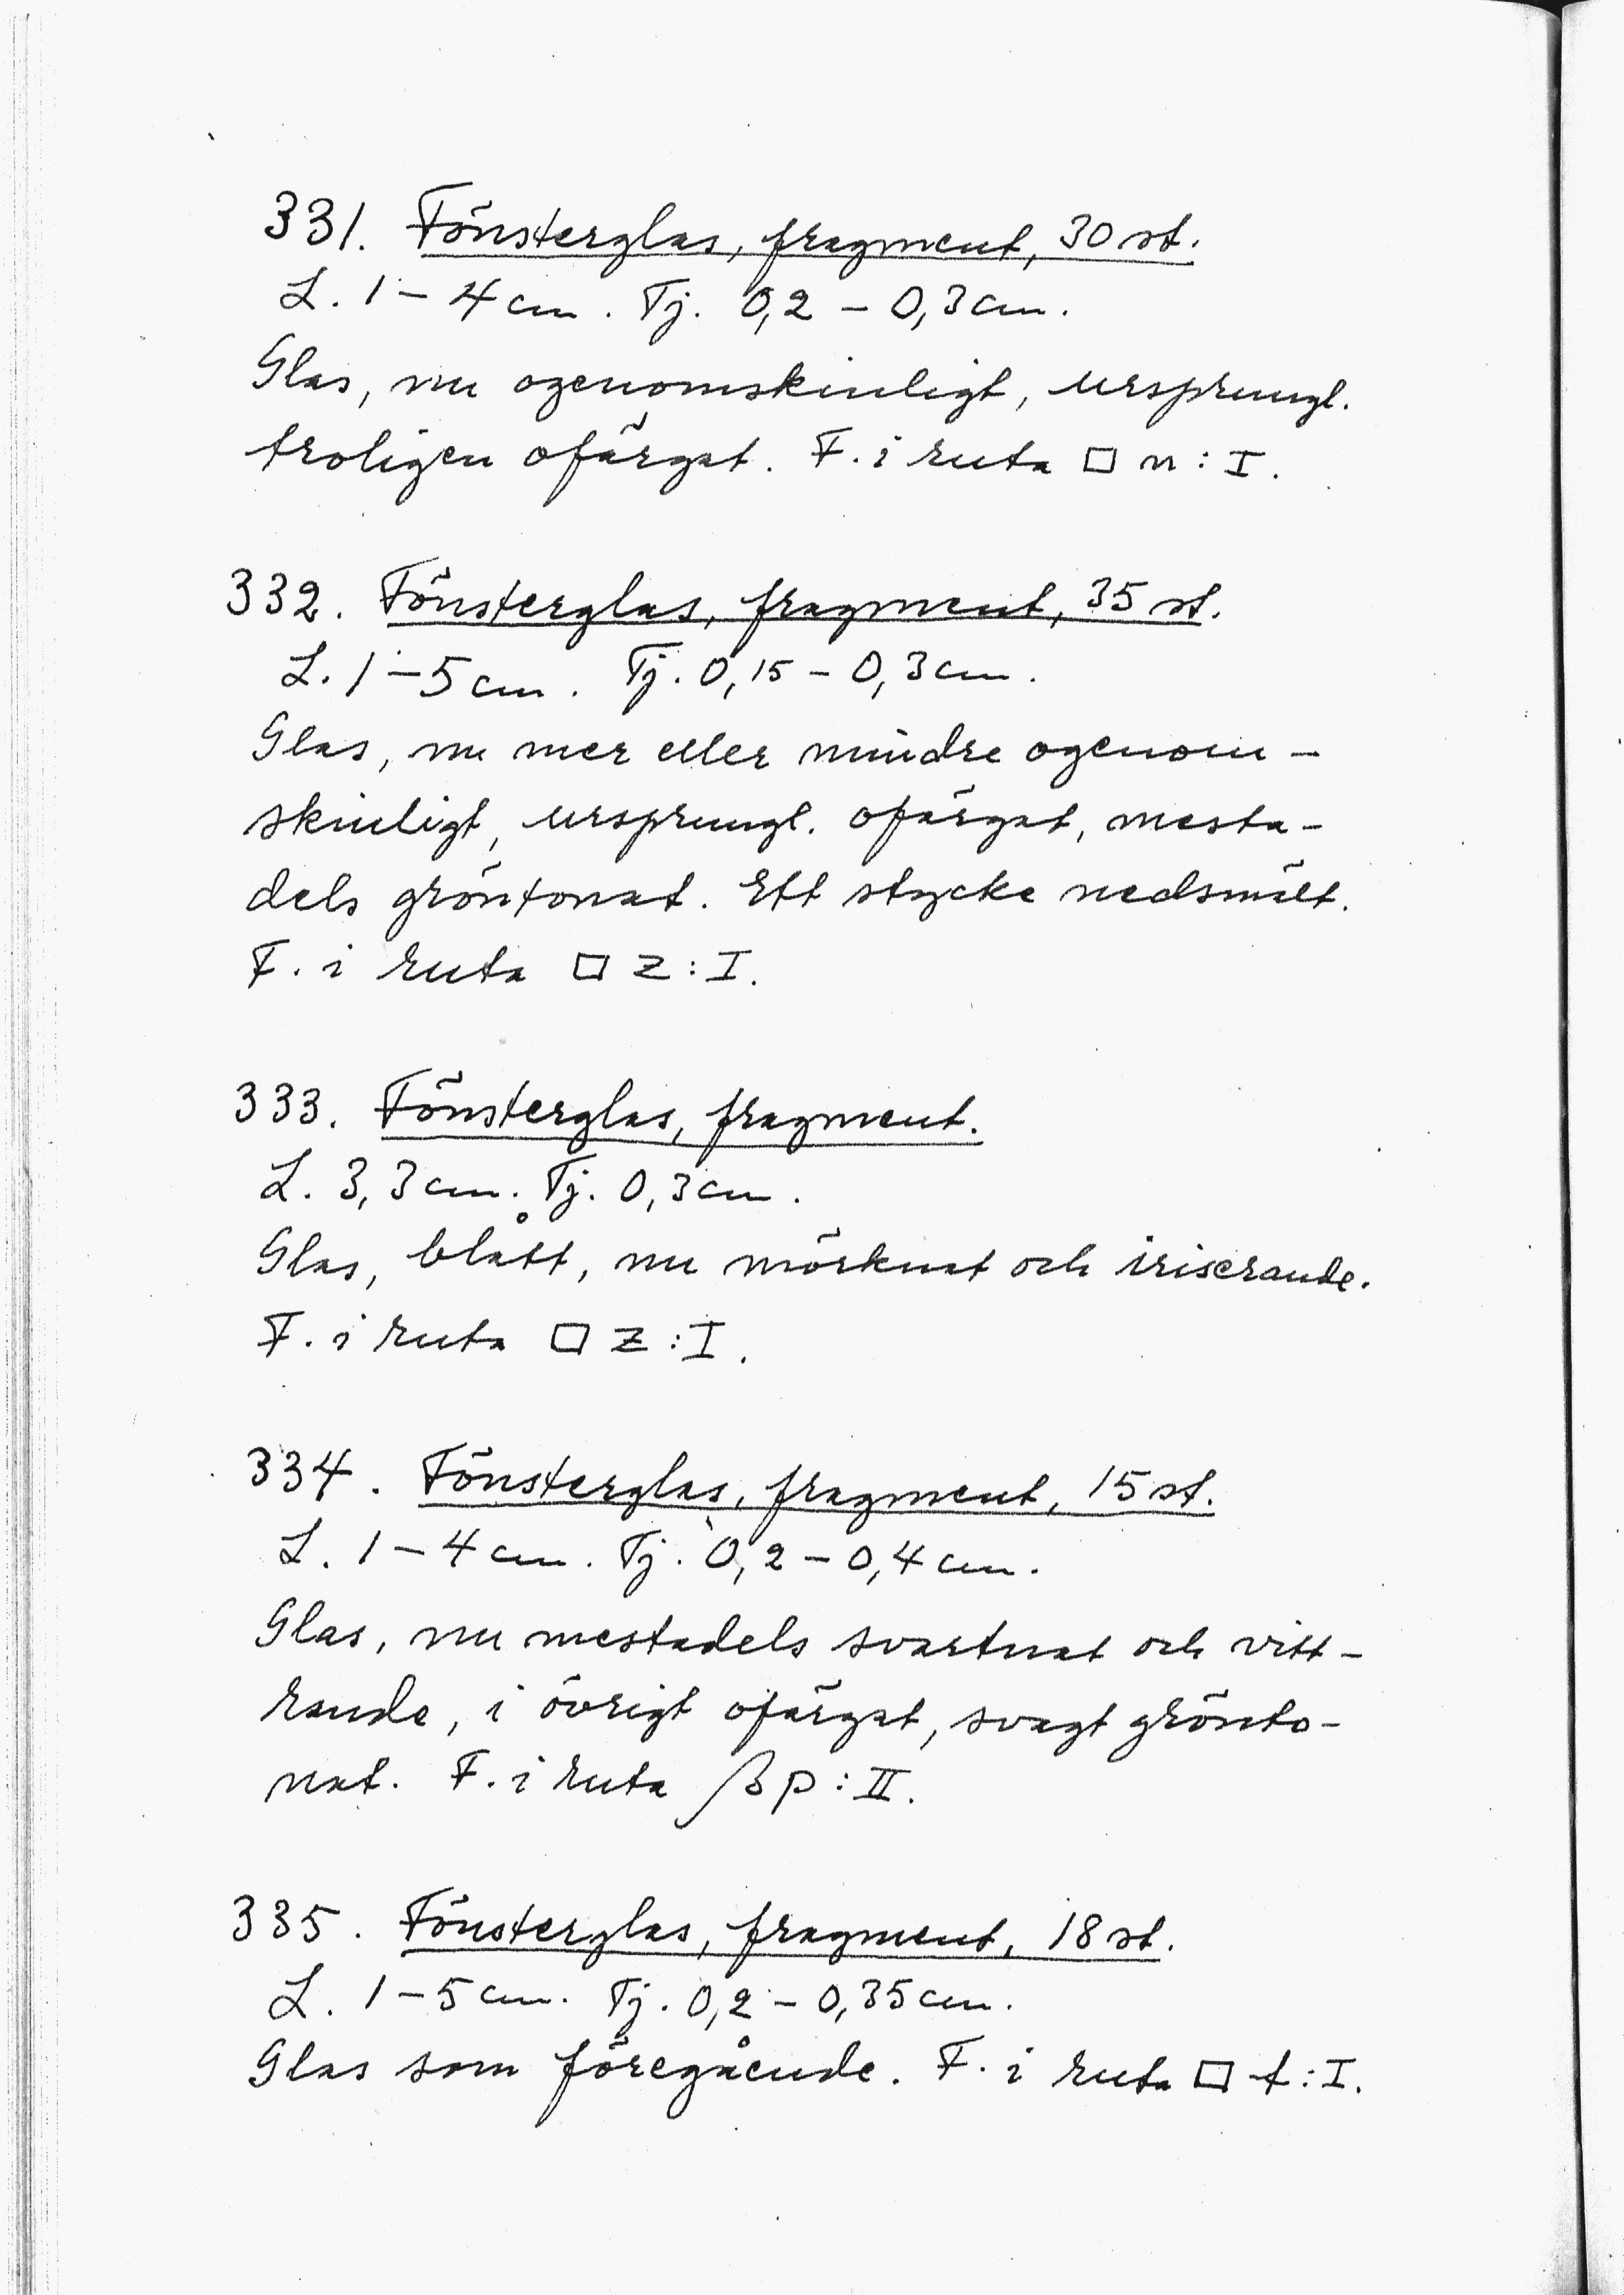 331. Fönsterglas, fragment, 30 st.
L. 1 – 4 cm. Tj. 0,2 – 0,3 cm.
Glas, nu ogenomskinligt, ursprungl.
troligen ofärgat. F. i ruta □ n : I.
332. Fönsterglas, fragment, 35 st.
L. 1 – 5 cm. Tj. 0,15 – 0,3 cm.
Glas, nu mer eller mindre ogenom-
skinligt, ursprungl. ofärgat, mesta-
dels gröntonat. Ett stycke nedsmält.
F. i ruta □ z : I.
333. Fönsterglas, fragment.
L. 3,3 cm. Tj. 0,3 cm.
Glas, blått, nu mörknat och iriserande.
F. i ruta □ z : I.
334. Fönsterglas, fragment, 15 st.
L. 1 – 4 cm. Tj. 0,2 – 0,4 cm.
Glas, nu mestadels svartnat och vitt-
rande, i övrigt ofärgat, svagt grönto-
nat. F. i ruta β p : II.
335. Fönsterglas, fragment, 18 st.
L. 1 – 5 cm. Tj. 0,2 – 0,35 cm.
Glas som föregående. F. i ruta □ t : I.